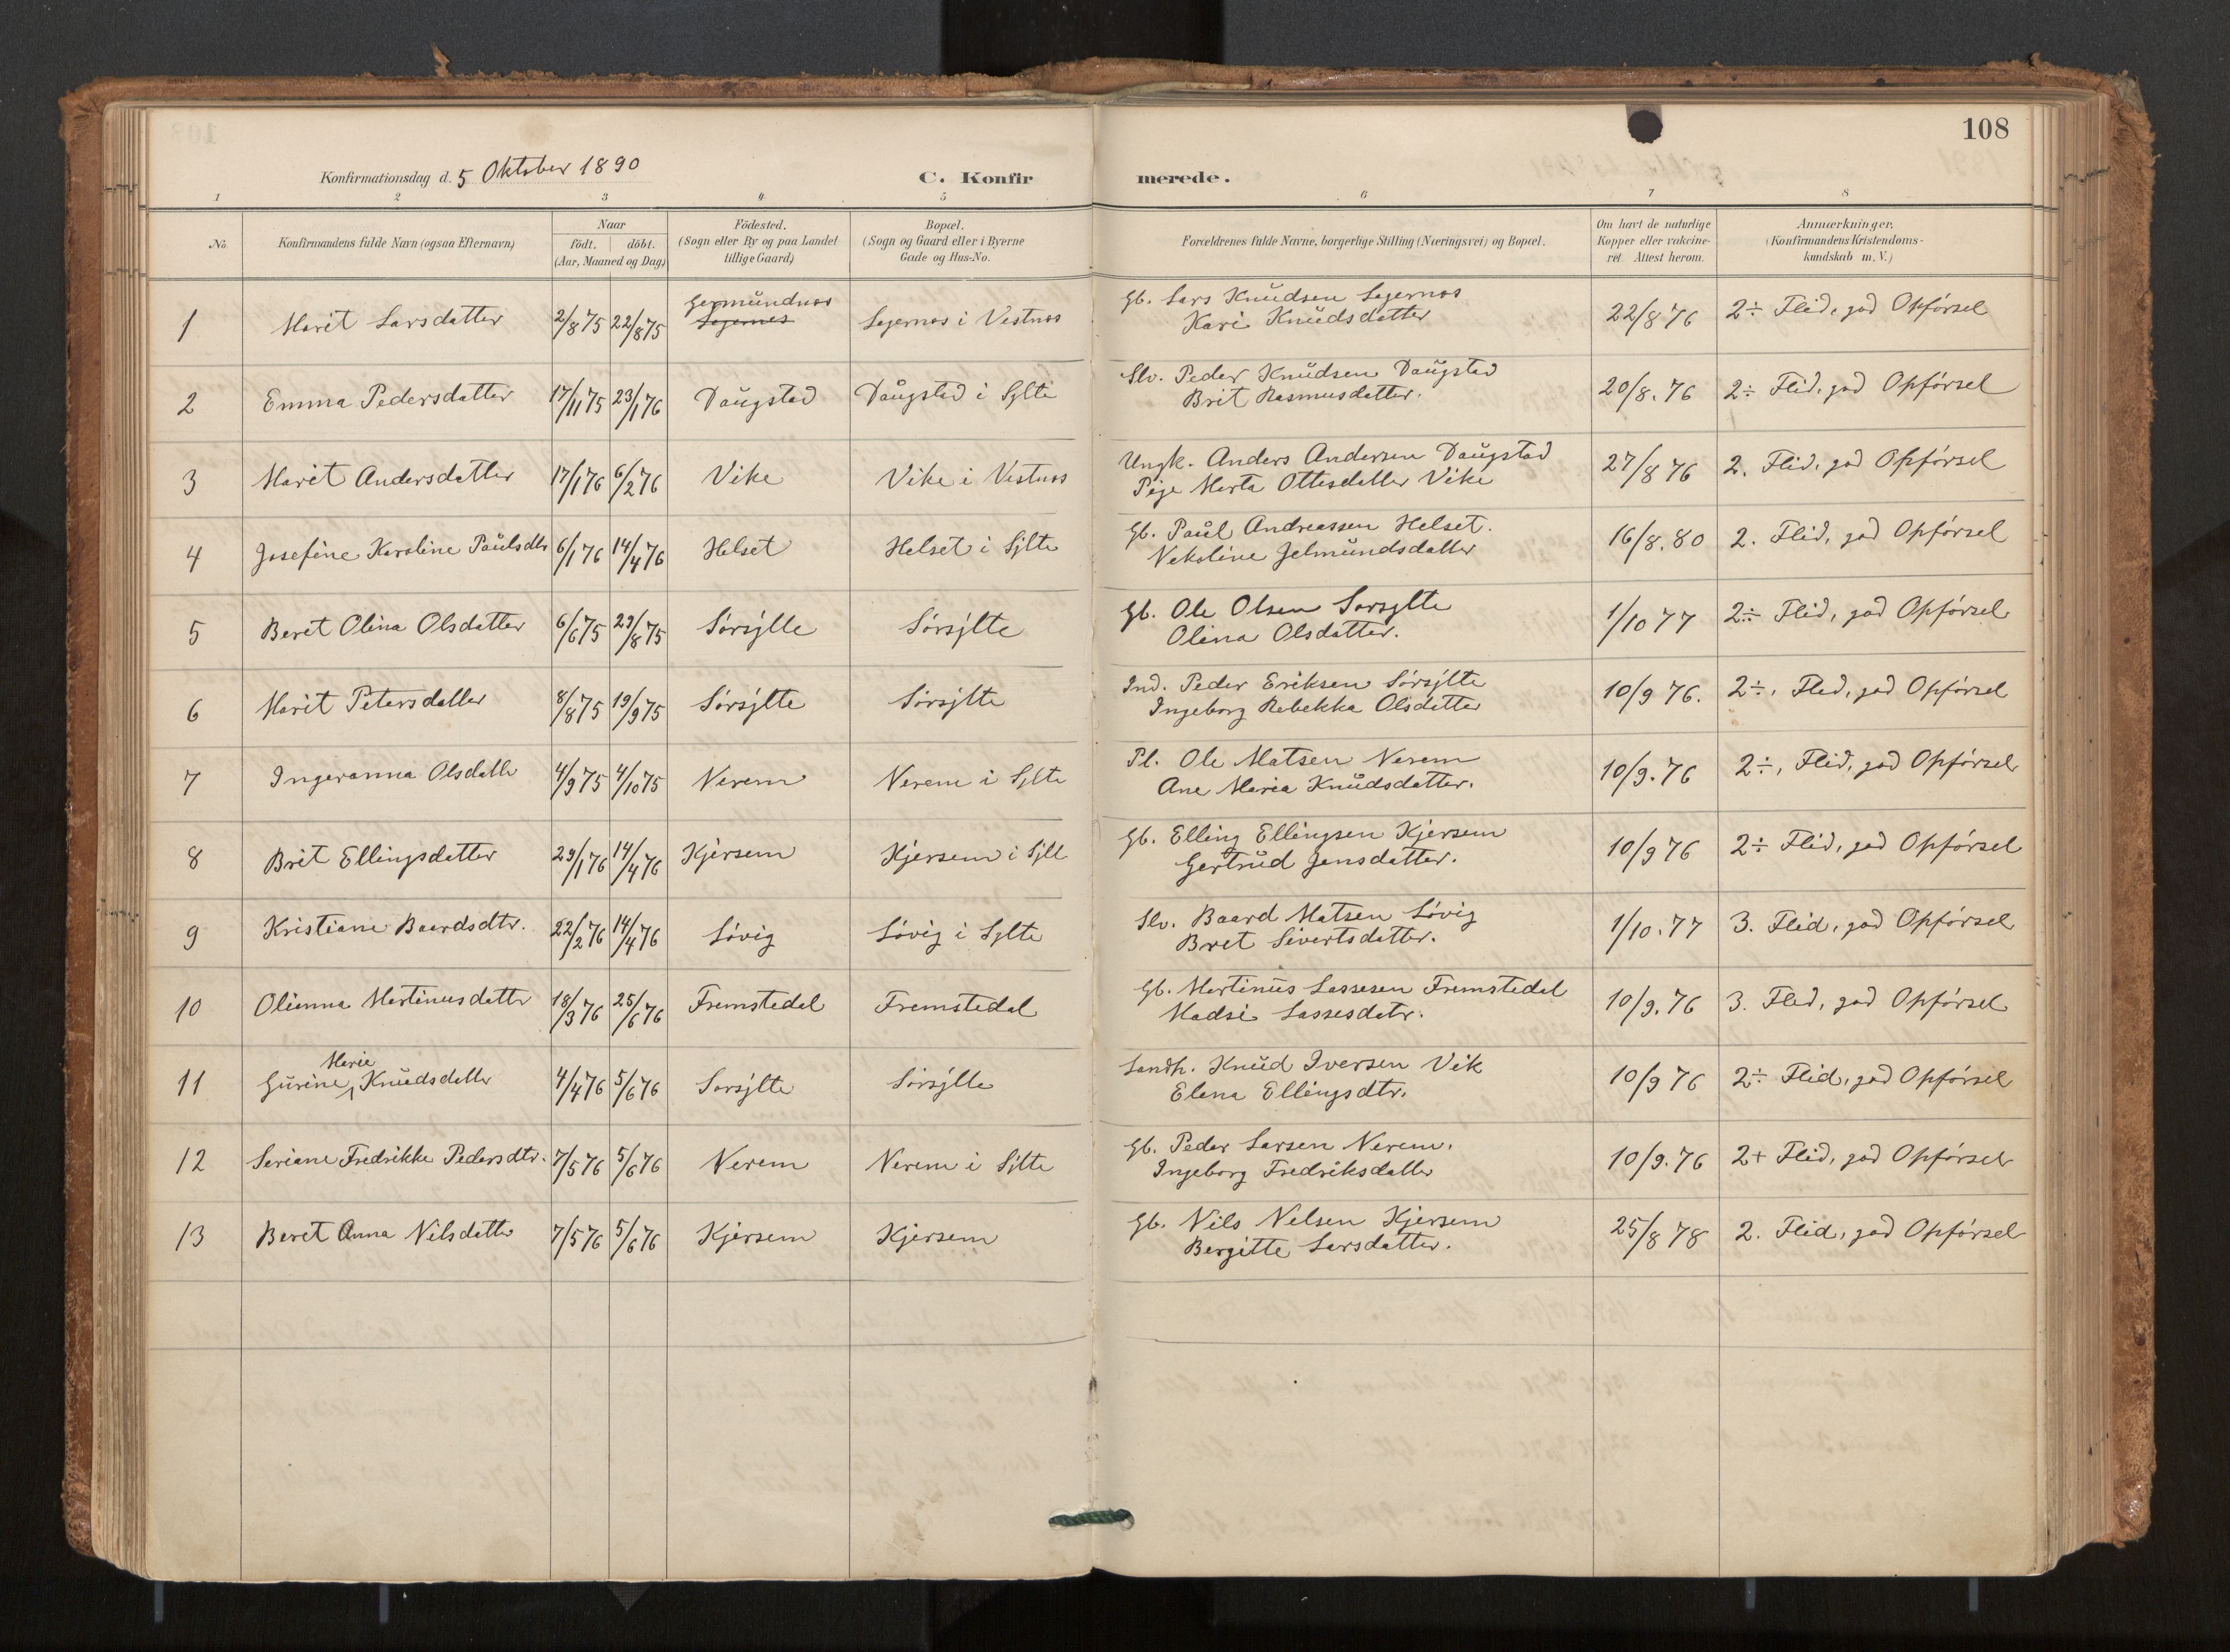 108
Konfirmationsdag d. 5 Oktober 1890
C. Konfirmerede.
1 2 3 4 5 6 7 8
No.
Konfirmandens fulde Navn (ogsaa Efternavn)
Naar
födt. döbt.
(Aar, Maaned og Dag)
Födested.
(Sogn eller By og paa Landet
tillige Gaard)
Bopæl.
(Sogn og Gaard eller i Byerne
Gade og Hus-No.
Forældrenes fulde Navne, borgerlige Stilling (Næringsvei) og Bopæl.
Om havt de naturlige
Kopper eller vakcine-
ret. Attest herom.
Anmærkninger.
(Konfirmandens Kristendoms-
kundskab m. V.)
Germundnæs
1 Marit Larsdatter 2/8 75 22/8 75 Sagernes Sagernæs i Vestnæs
Gb. Lars Knudsen Sagernæs
Kari Knudsdatter
22/8 76 2÷ Flid, god Opførsel
2 Emma Pedersdatter 17/11 75 23/1 76 Daugstad Daugstad i Sylte
Slv. Peder Knudsen Daugstad
Brit Rasmusdatter.
20/8. 76 2÷ Flid, god Opførsel
3 Marit Andersdatter 17/1 76 6/2 76 Vike Vike i Vestnæs
Ungk. Anders Andersen Daugstad
Pige Marta Ottesdatter Vike
27/8 76 2. Flid, god Opførsel
4 Josefine Karoline Paulsdtr 6/1 76 14/4 76 Helset Helset i Sylte
Gb. Paul Andreassen Helset.
Nekoline Jelmundsdatter
16/8. 80 2. Flid, god Opførsel
5 Beret Olina Olsdatter 6/6 75 29/8 75 Sørsylte Sørsylte
Gb. Ole Olsen Sørsylte
Olina Olsdatter.
1/10 77 2÷ Flid, god Opførsel
6 Marit Petersdatter 8/8 75 19/9 75 Sørsylte Sørsylte
Ind. Peder Eriksen Sørsylte
Ingeborg Rebekka Olsdatter
10/9 76. 2÷, Flid, god Opførsel
7 Ingeranna Olsdattr 4/9 75 4/10 75 Nerem Nerem i Sylte
Pl. Ole Matsen Nerem
Ane Maria Knudsdatter.
10/9. 76 2÷, Flid, god Opførsel
8 Brit Ellingsdatter 29/1 76 14/4 76 Kjersem Kjersem i Sylt
Gb. Elling Ellingsen Kjersem
Gertrud Jensdatter.
10/9 76 2÷ Flid, god Opførsel
9 Kristiane Baardsdtr. 22/2 76 14/4 76 Løvig Løvig i Sylte
Slv. Baard Matsen Løvig
Beret Sivertsdatter.
1/10. 77 3. Flid, god Opførsel
10 Olianna Martinusdattr 18/3 76 25/6 76 Fremstedal Fremstedal
Gb. Martinus Lassesen Fremstedal
Madsi Lassesdatr.
10/9. 76 3. Flid, god Opførsel
Marie
11 Gurine Knudsdatter 4/4 76 5/6 76 Sørsylte Sørsylte
Landh. Knud Iversen Vik
Elena Ellingsdtr.
10/9 76 2÷ Flid, god Opførsel
12 Seriane Fredrikke Pedersdtr. 7/5 76 5/6 76 Nerem Nerem i Sylte
Gb. Peder Larsen Nerem.
Ingeborg Fredriksdatter
10/9. 76 2+ Flid, god Opførsel
13 Beret Anna Nilsdattr 7/5 76 5/6 76 Kjersem Kjersem
Gb. Nils Nelsen Kjersem
Bergitte Larsdatter.
25/8 78 2. Flid, god Opførsel